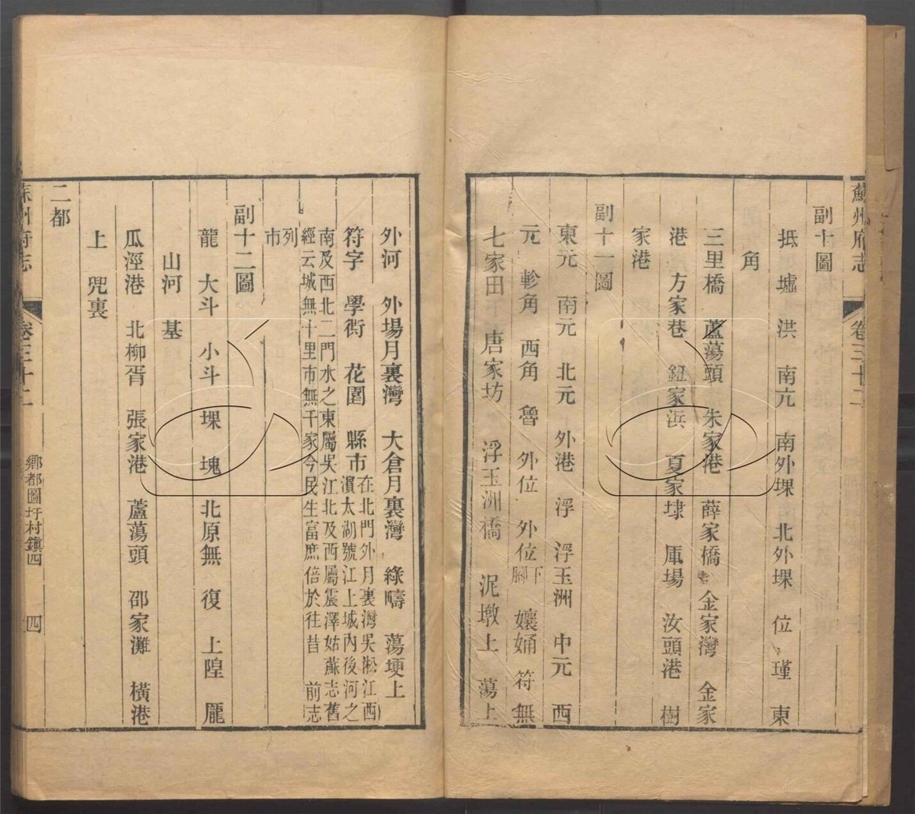 蘇州府志 卷三十二
副十圖
抵 墟 洪 南元 南外堁 北外堁 位 瑾 東
角
三里橋 蘆蕩頭 朱家港 薛家橋 金家灣 金家
港 方家巷 鈕家浜 夏家埭 厙場 汝頭港 樹
家港
副十一圖
東元 南元 北元 外港 浮 浮玉洲 中元 西
元 軫角 西角 魯 外位 外位下腳 孃𡝫 符 無
七家田 唐家坊 浮玉洲橋 泥墩上 蕩上
外河 外場月裏灣 大倉月裏灣 綠疇 蕩埂上
符字 學衖 花園 縣市在北門外月裏灣吳淞江西
濱太湖號江上城內後河之
南及西北二門水之東屬吳江北及西屬震澤姑蘇志舊
經云城無十里市無千家今民生富庶倍於往昔 前志
列
市
副十二圖
龍 大斗 小斗 堁 塊 北原無 復 上隍 厖
山河 基
瓜涇港 北柳胥 張家港 蘆蕩頭 邵家灘 橫港
上 兜裏
二都
蘇州府志 卷三十二 鄉都圖圩村鎮四 四